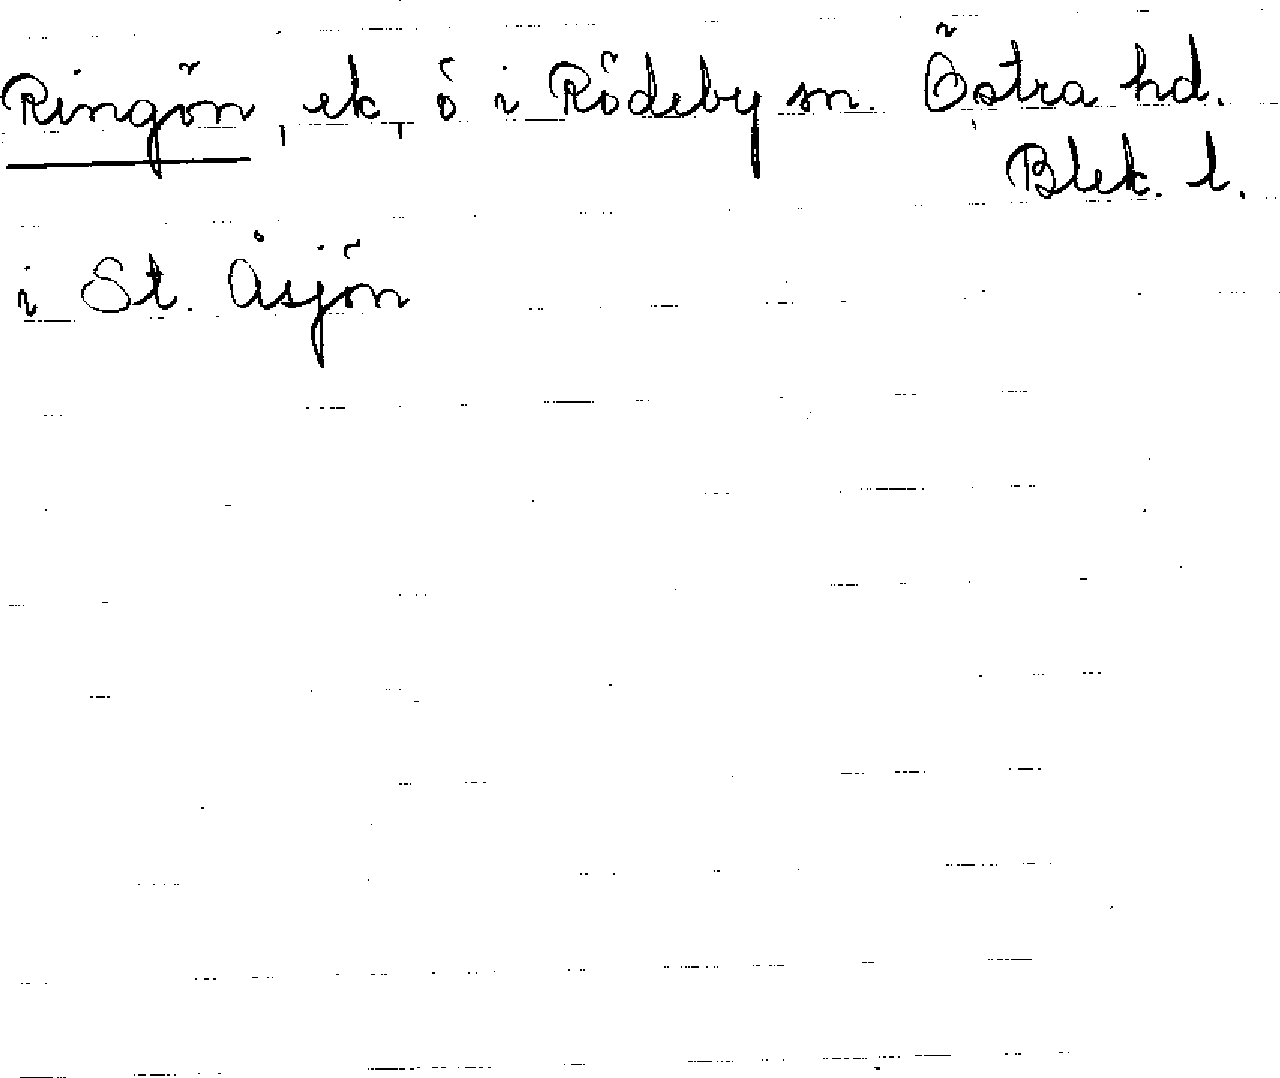 Ringön, ek, ö i Rödeby sn. Östra hd.
Blek. l.
i St. Åsjön